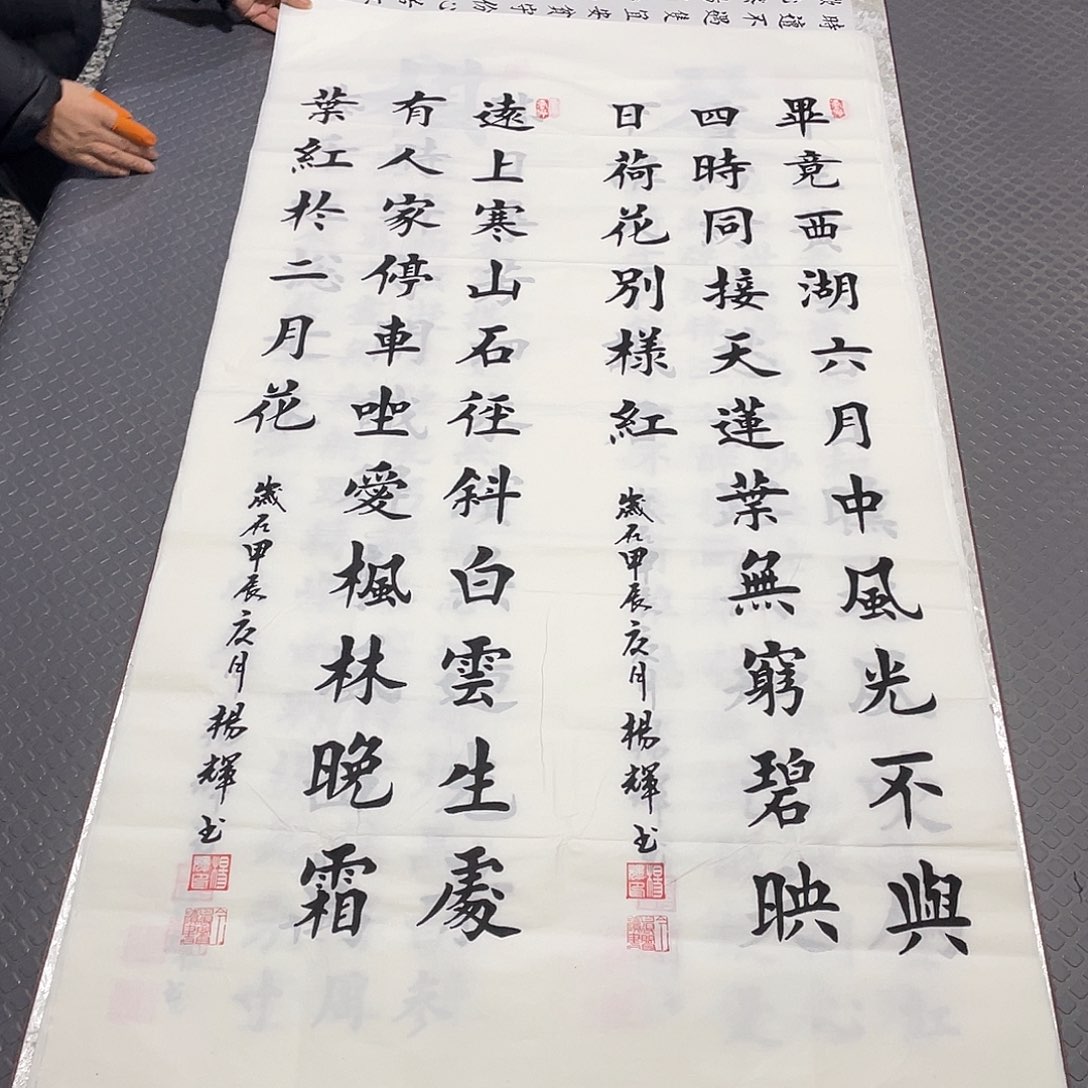 畢竟西湖六月中風光不與
四時同接天蓮葉無窮碧映
日荷花別樣紅
歲在甲辰夏月楊輝書
遠上寒山石徑斜白雲生處
有人家停車坐愛楓林晚霜
葉紅於二月花
歲在甲辰夏月楊輝書